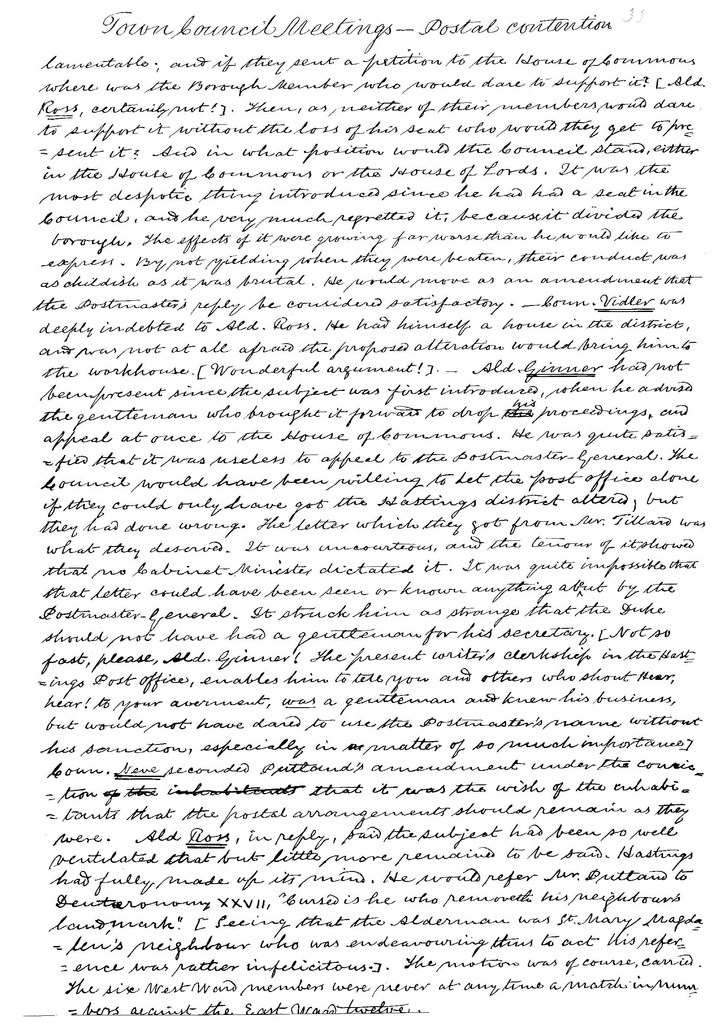 Town Council Meetings — Postal contention 33
lamentable; and if they sent a petition to the House of Commons
where was the Borough Member who would dare to support it? [Ald.
Ross, certainly not!]. Then, as neither of their members would dare
to support it without the loss of his seat who would they get to pre-
=sent it? And in what position would the Council stand, either
in the House of Commons or the House of Lords. It was the
most despotic thing introduced since he had had a seat in the
Council, and he very much regretted it, because it divided the
borough. The effects of it were growing far worse than he would like to
express. By not yielding when they were beaten, their conduct was
as childish as it was brutal. He would move as an amendment that
the Postmaster's reply be considered satisfactory. — Coun. Vidler was
deeply indebted to Ald. Ross. He had himself a house in the district,
and was not at all afraid the proposed alteration would bring him to
the workhouse. [Wonderful argument!]. — Ald. Ginner had not
been present since the subject was first introduced, when he advised
the gentleman who brought it forward to drop his proceedings, and
appeal at once to the House of Commons. He was quite satis=
=fied that it was useless to appeal to the Postmaster-General. The
Council would have been willing to let the post office alone
if they could only have got the Hastings district altered, but
they had done wrong. The letter which they got from Mr. Tillard was
what they deserved. It was uncourteous, and the tenour of it showed
that no Cabinet Minister dictated it. It was quite impossible that
that letter could have been seen or known anything about by the
Postmaster-General. It struck him as strange that the Duke
should not have had a gentleman for his secretary. [Not so
fast, please, Ald. Ginner! The present writer's clerkship in the Hast-
=ings Post Office, enables him to tell you and others who shout Hear,
hear! to your averment, was a gentleman and knew his business,
but would not have dared to use the Postmaster's name without
his sanction, especially in matter of so much importance]
Coun. Neve seconded Putland's amendment under the convic-
=tion of the inhabitants that it was the wish of the inhabi=
=tants that the postal arrangements should remain as they
were. Ald Ross, in reply, said the subject had been so well
ventilated that but little more remained to be said. Hastings
had fully made up its mind. He would refer Mr. Putland to
Deuteronomy XXVII, "Cursed is he who removeth his neighbour's
landmark". [Seeing that the Alderman was St. Mary Magda
=len's neighbour who was endeavouring thus to act his refer=
=ence was rather infelicitous.]. The motion was of course, carried.
The six West Ward members were never at any time a match in num
=bers against the East Ward twelve.